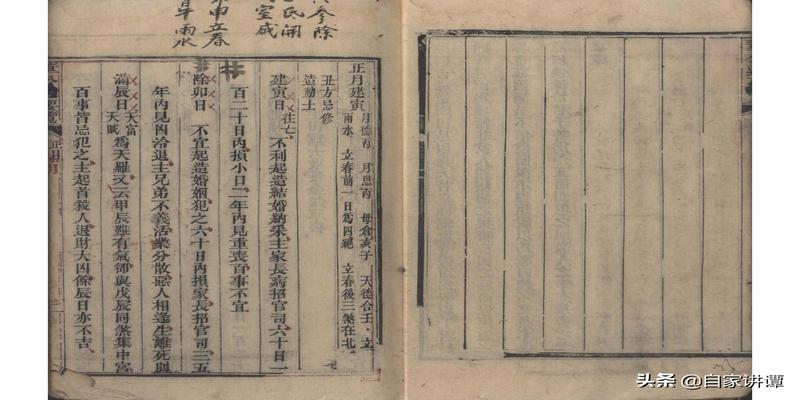 参除
氏閉
申立春
雨水
正月建寅 月德丙 月恩丙 母倉亥子 天德合壬、立
雨水 立春前一日為四絕 立春後三煞在北
丑方忌修
造動土
建寅日 往亡 不利起造結婚納采主家長病招官司六十日一
百二十日內損小口二年內見重喪百事不宜
除卯日 不宜起造婚姻犯之六十日內損家長招官司三五
年內見凶冷退主兄弟不義活業分散惡人相逢生離死別
滿辰日 天富 天賊 為天羅又云甲辰雖有氣卻與戊辰同煞集中宮
百事皆忌犯之主起首殺人退財大凶係辰日亦不吉
头条 @自家讲谭